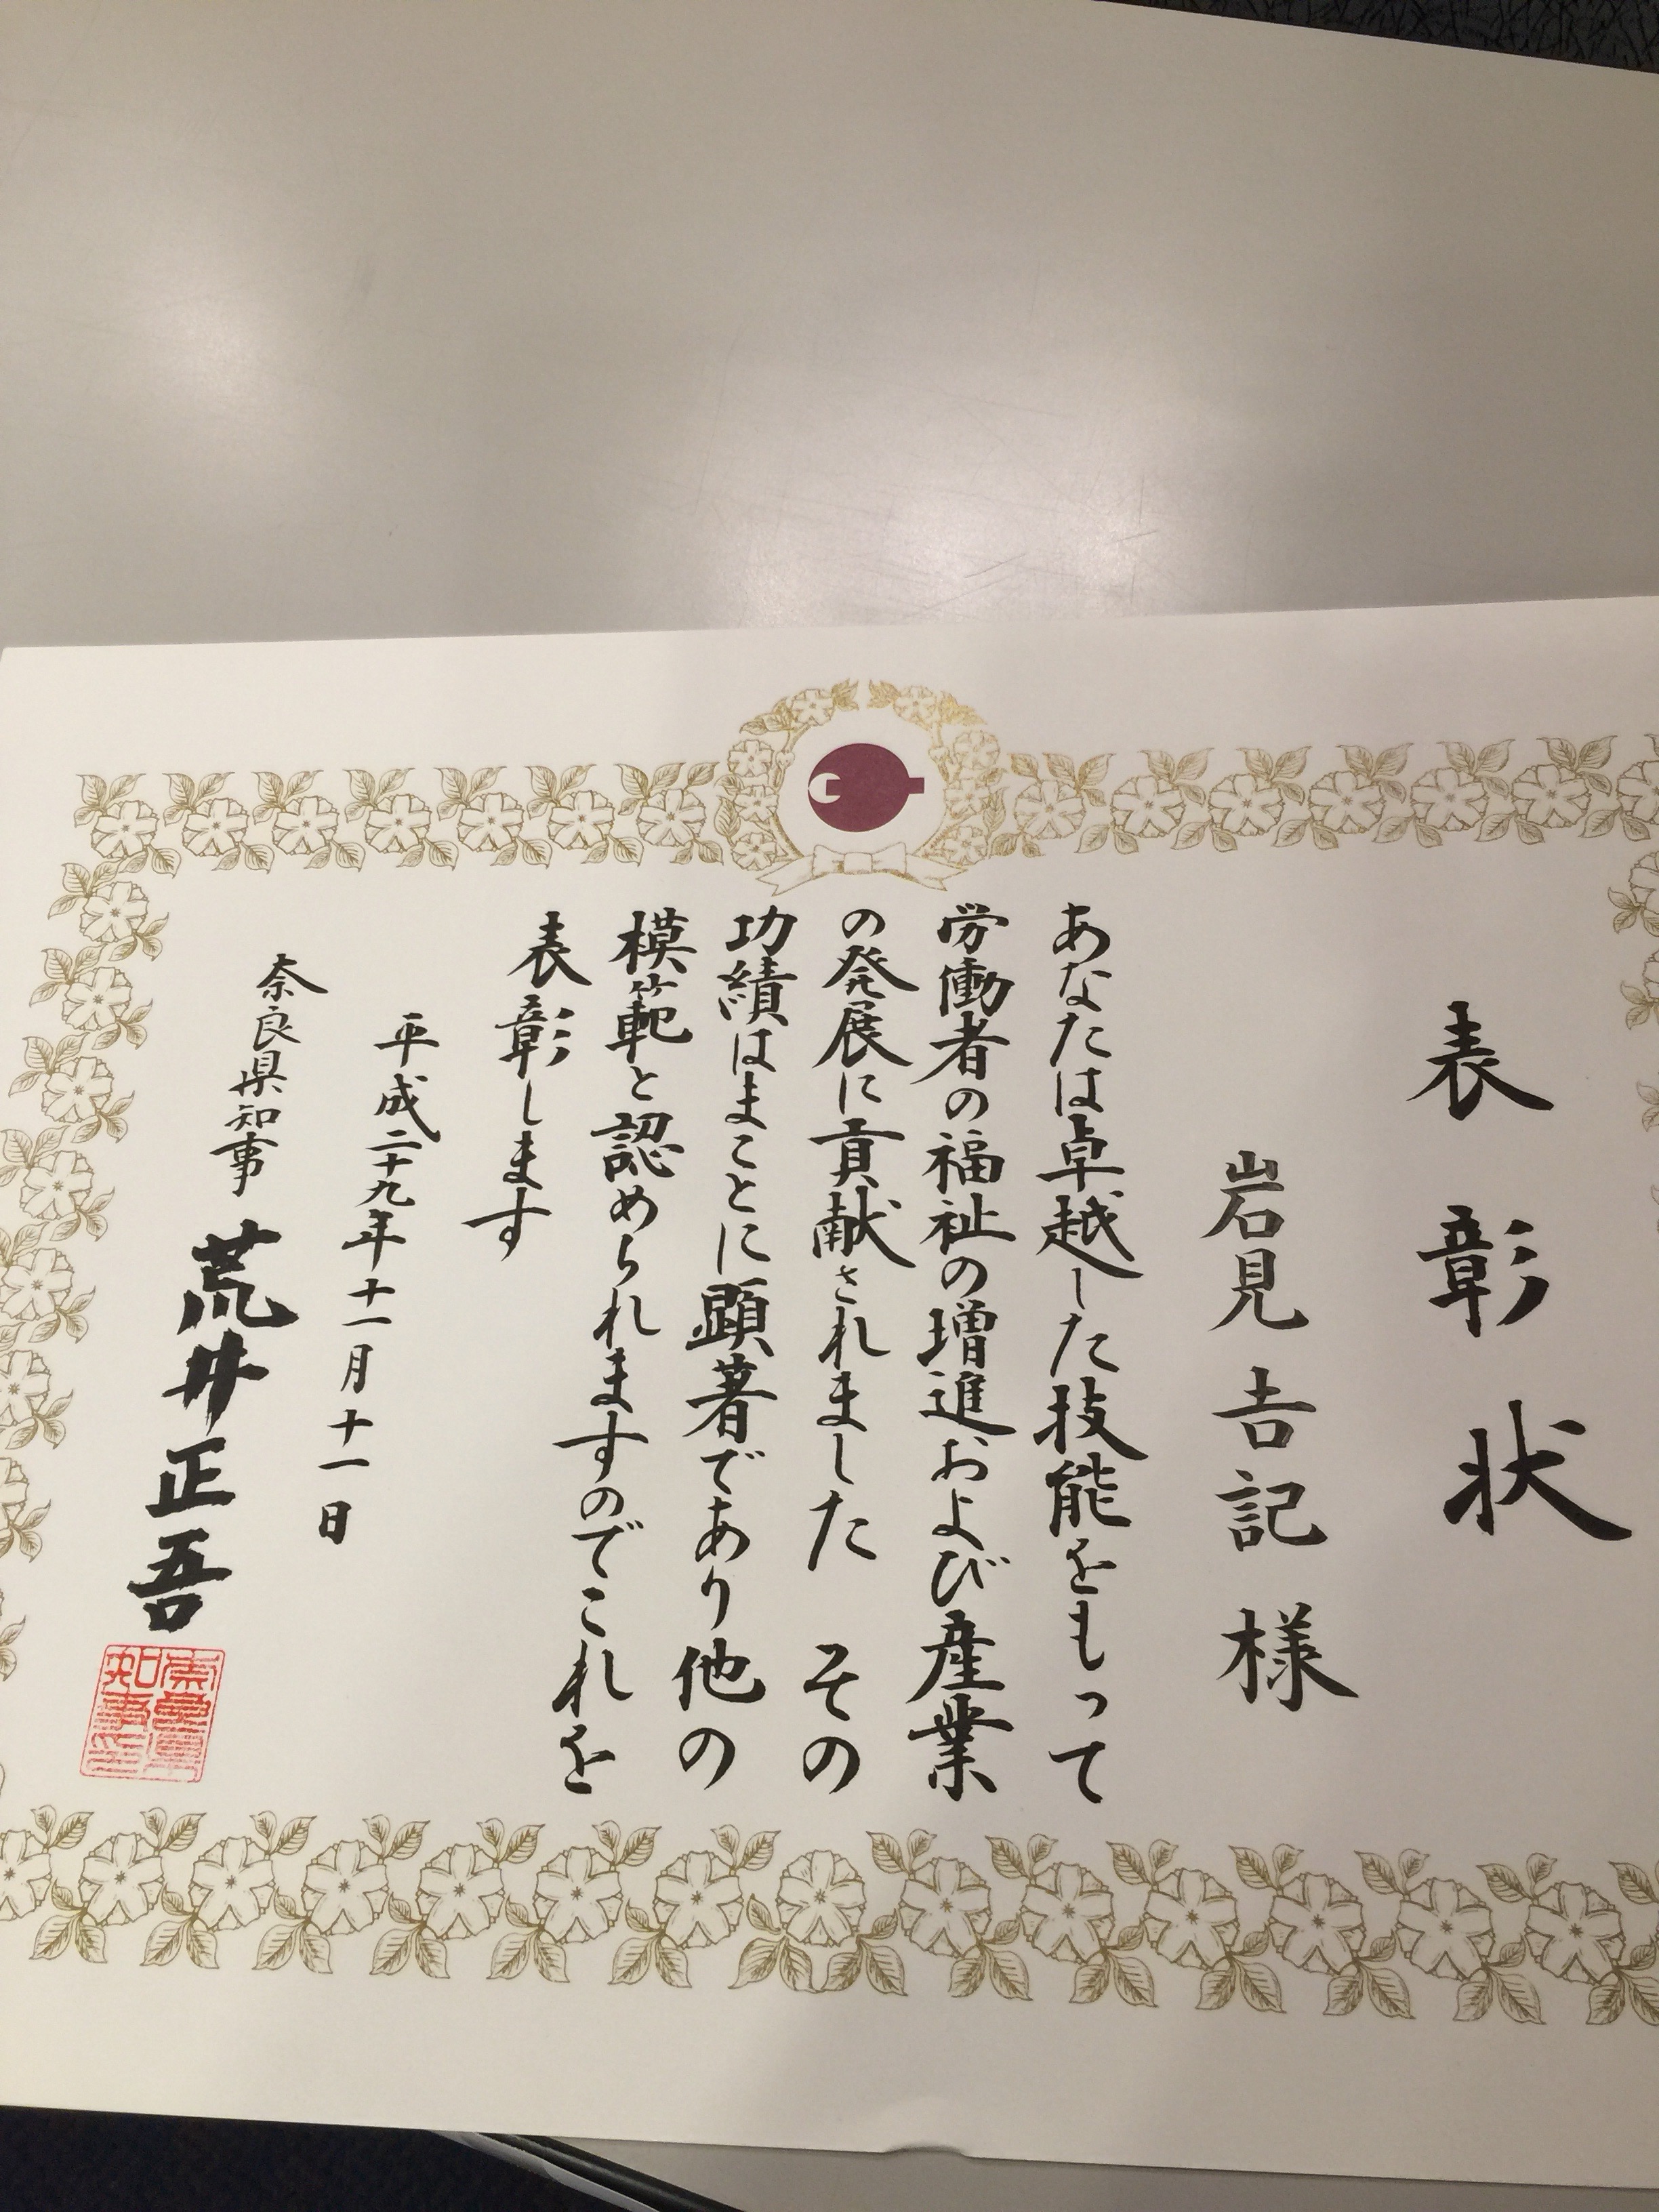 表彰状
岩見吉記様
あなたは卓越した技能をもって
労働者の福祉の増進および産業
の発展に貢献されました その
功績はまことに顕著であり他の
模範と認められますのでこれを
表彰します
平成二十九年十一月十一日
奈良県知事 荒井正吾
奈良県知事印